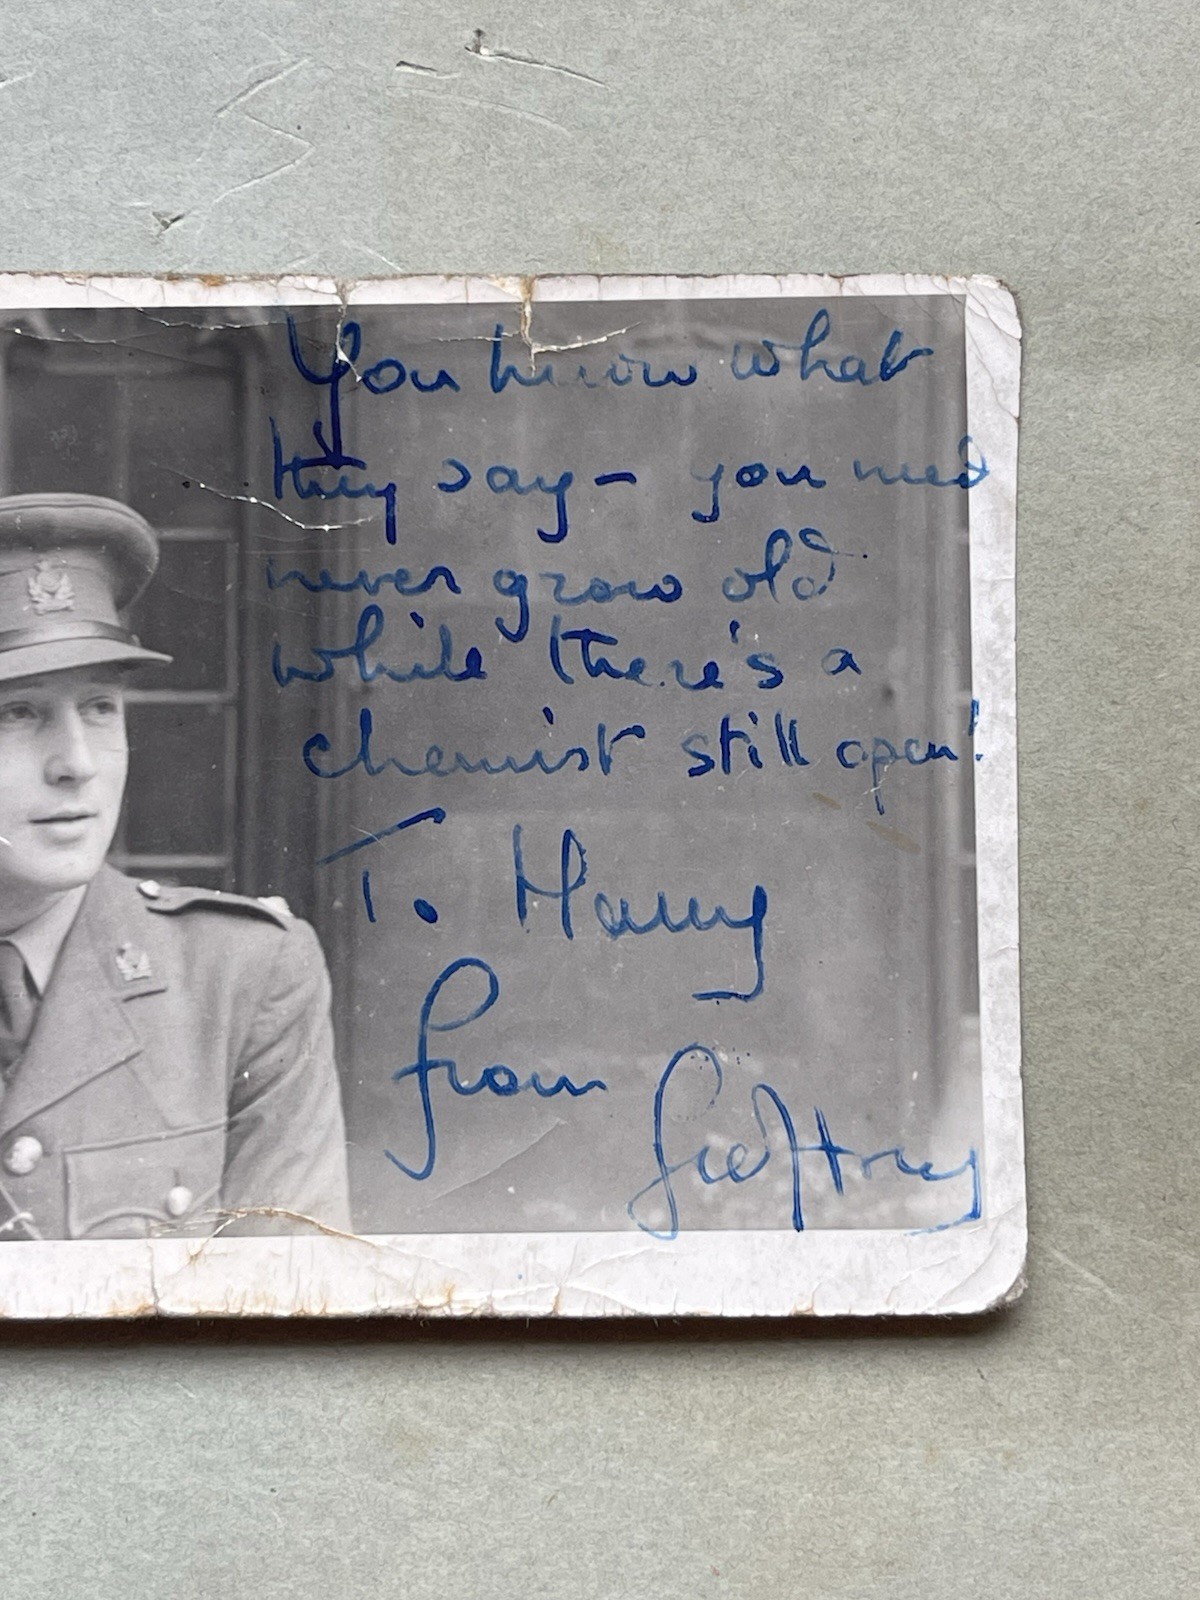 You know what
they say - you need
never grow old
while there's a
chemist still open!
To Harry
from
Geoffrey